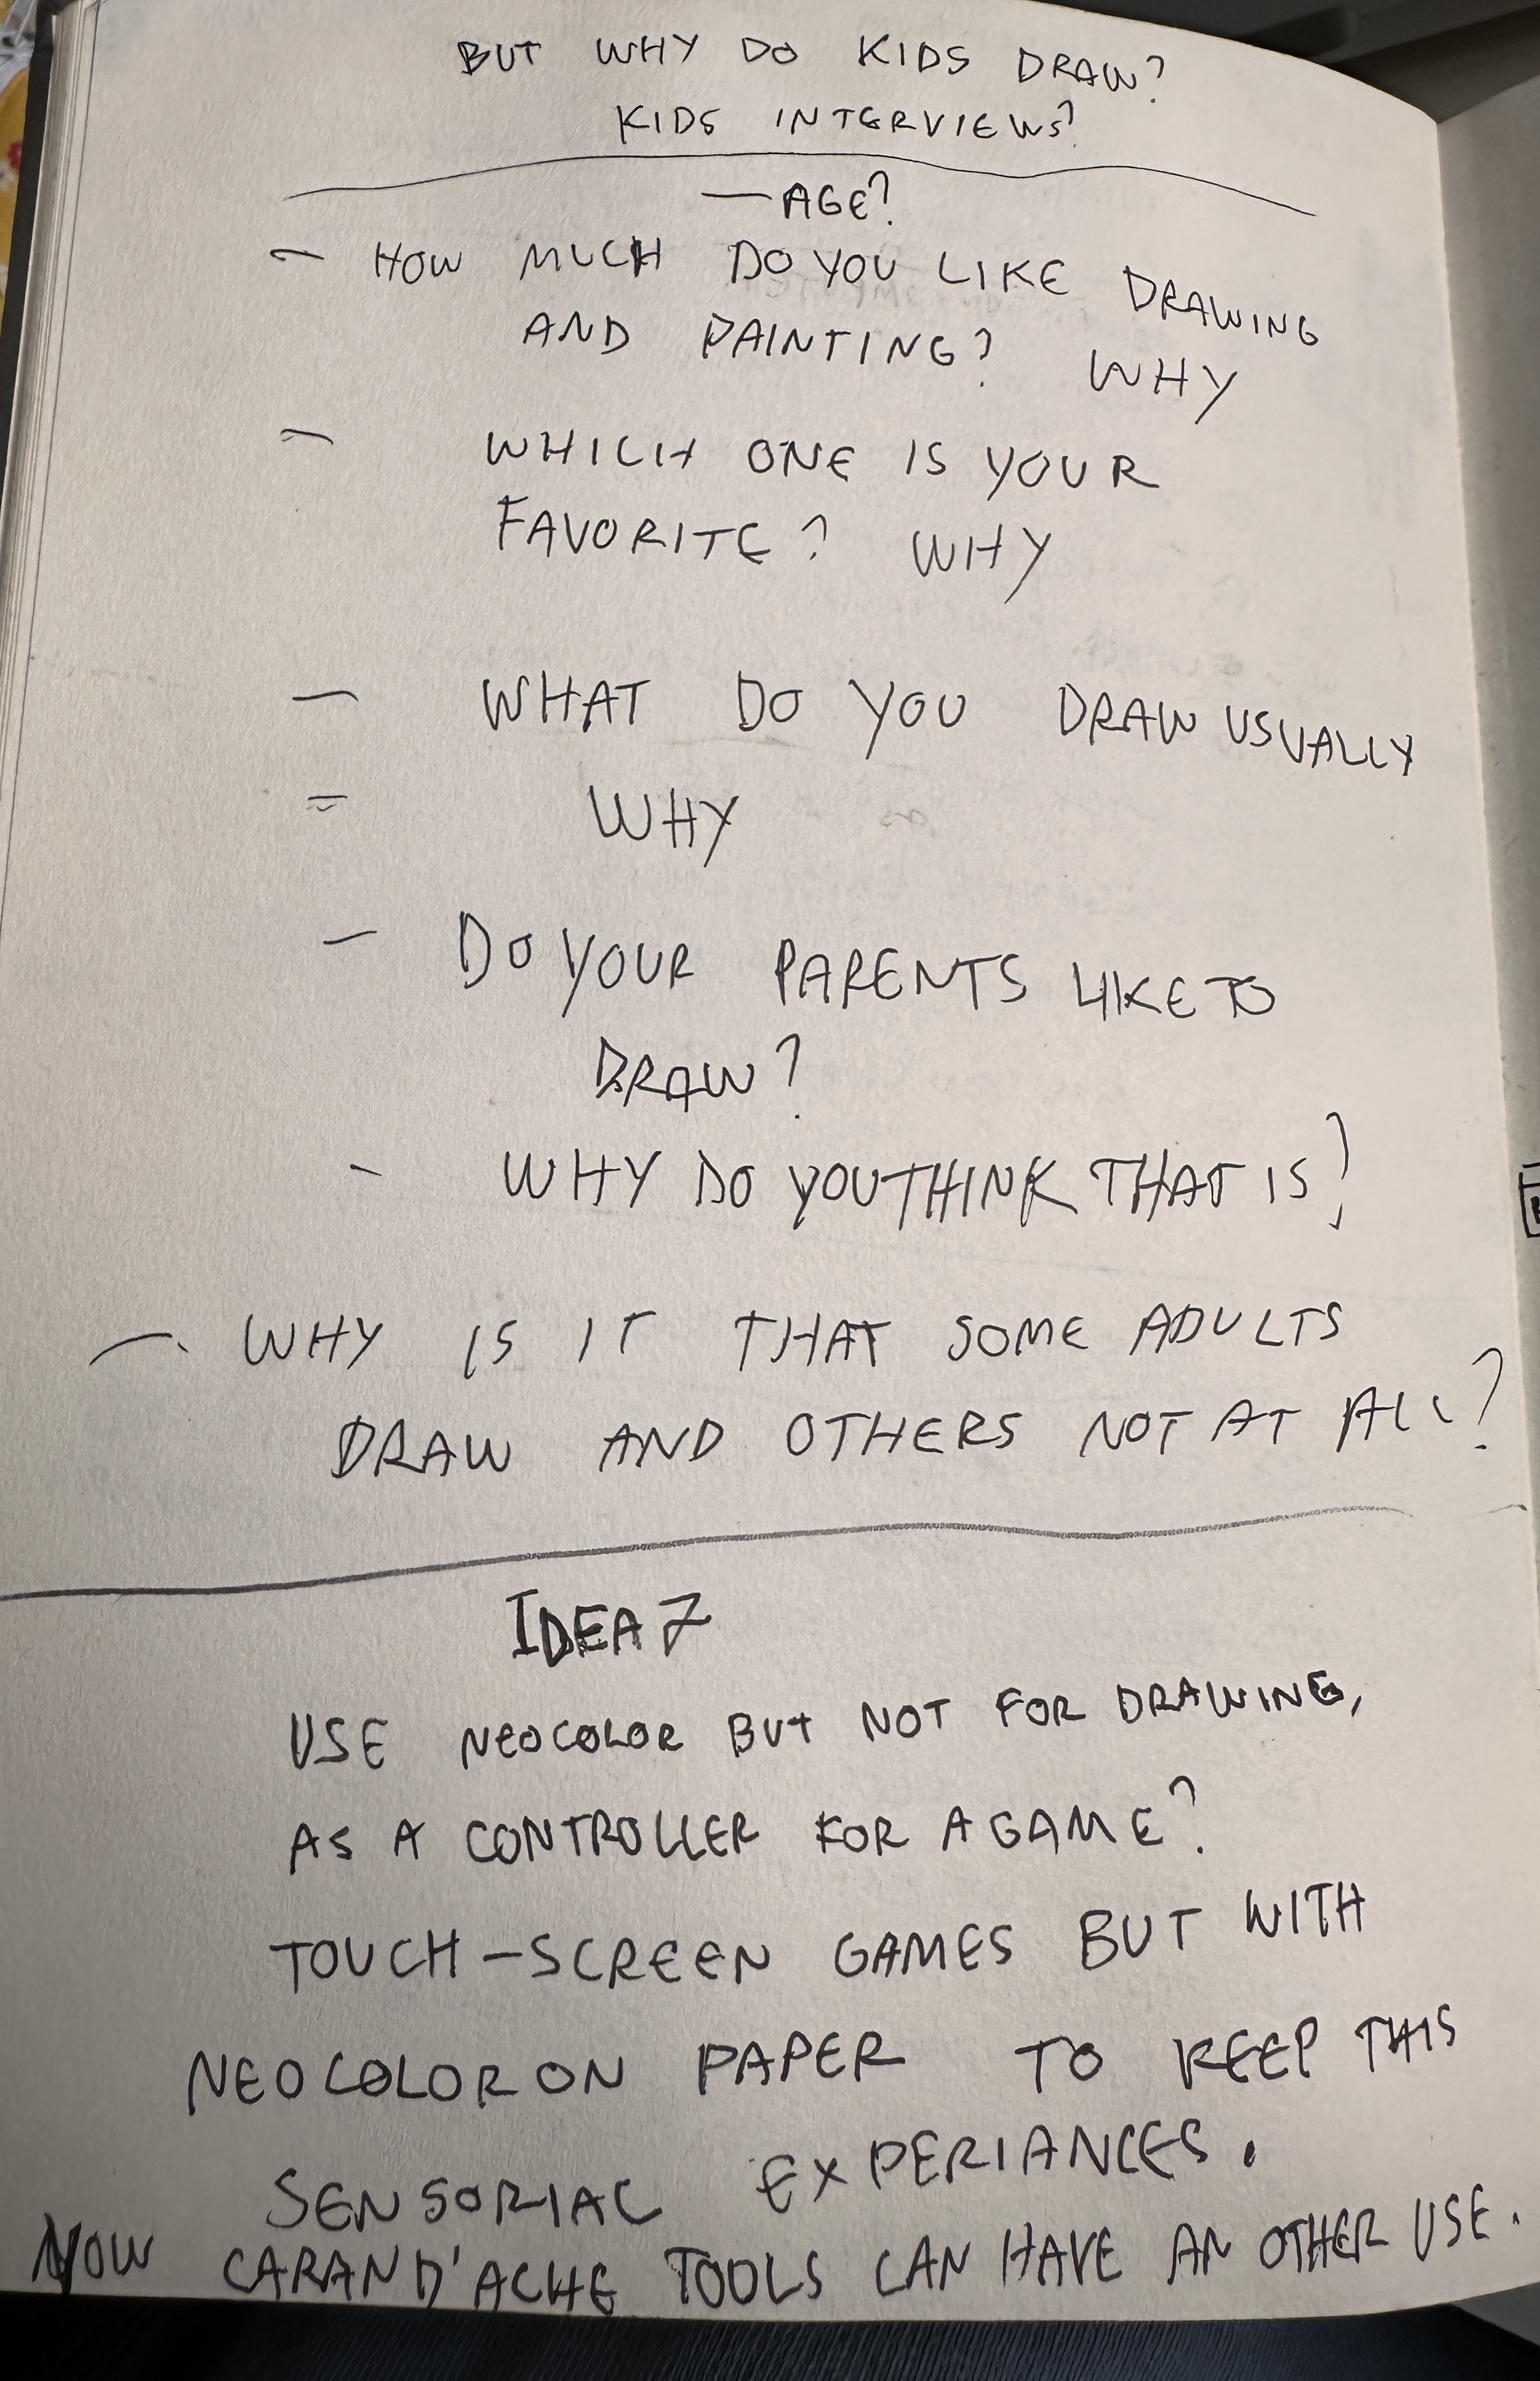 BUT WHY DO KIDS DRAW?
KIDS INTERVIEWS?
— AGE?
— HOW MUCH DO YOU LIKE DRAWING
AND PAINTING? WHY
— WHICH ONE IS YOUR
FAVORITE? WHY
— WHAT DO YOU DRAW USUALLY
= WHY
— DO YOUR PARENTS LIKE TO
DRAW?
- WHY DO YOU THINK THAT IS?
— WHY IS IT THAT SOME ADULTS
DRAW AND OTHERS NOT AT ALL?
IDEA 7
USE NEOCOLOR BUT NOT FOR DRAWING,
AS A CONTROLLER FOR A GAME?
TOUCH-SCREEN GAMES BUT WITH
NEOCOLOR ON PAPER TO KEEP THIS
SENSORIAL EXPERIANCES.
NOW CARAND'ACHE TOOLS CAN HAVE AN OTHER USE.